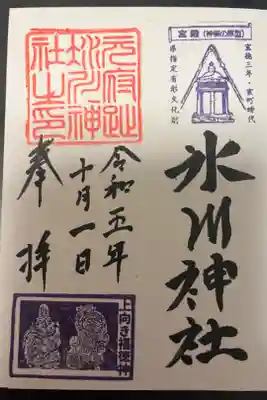 宮殿（神輿の原型）
宝徳三年・室町時代
県指定有形文化財
氷川神社
令和五年
十月一日
奉拝
氷川神
社之印